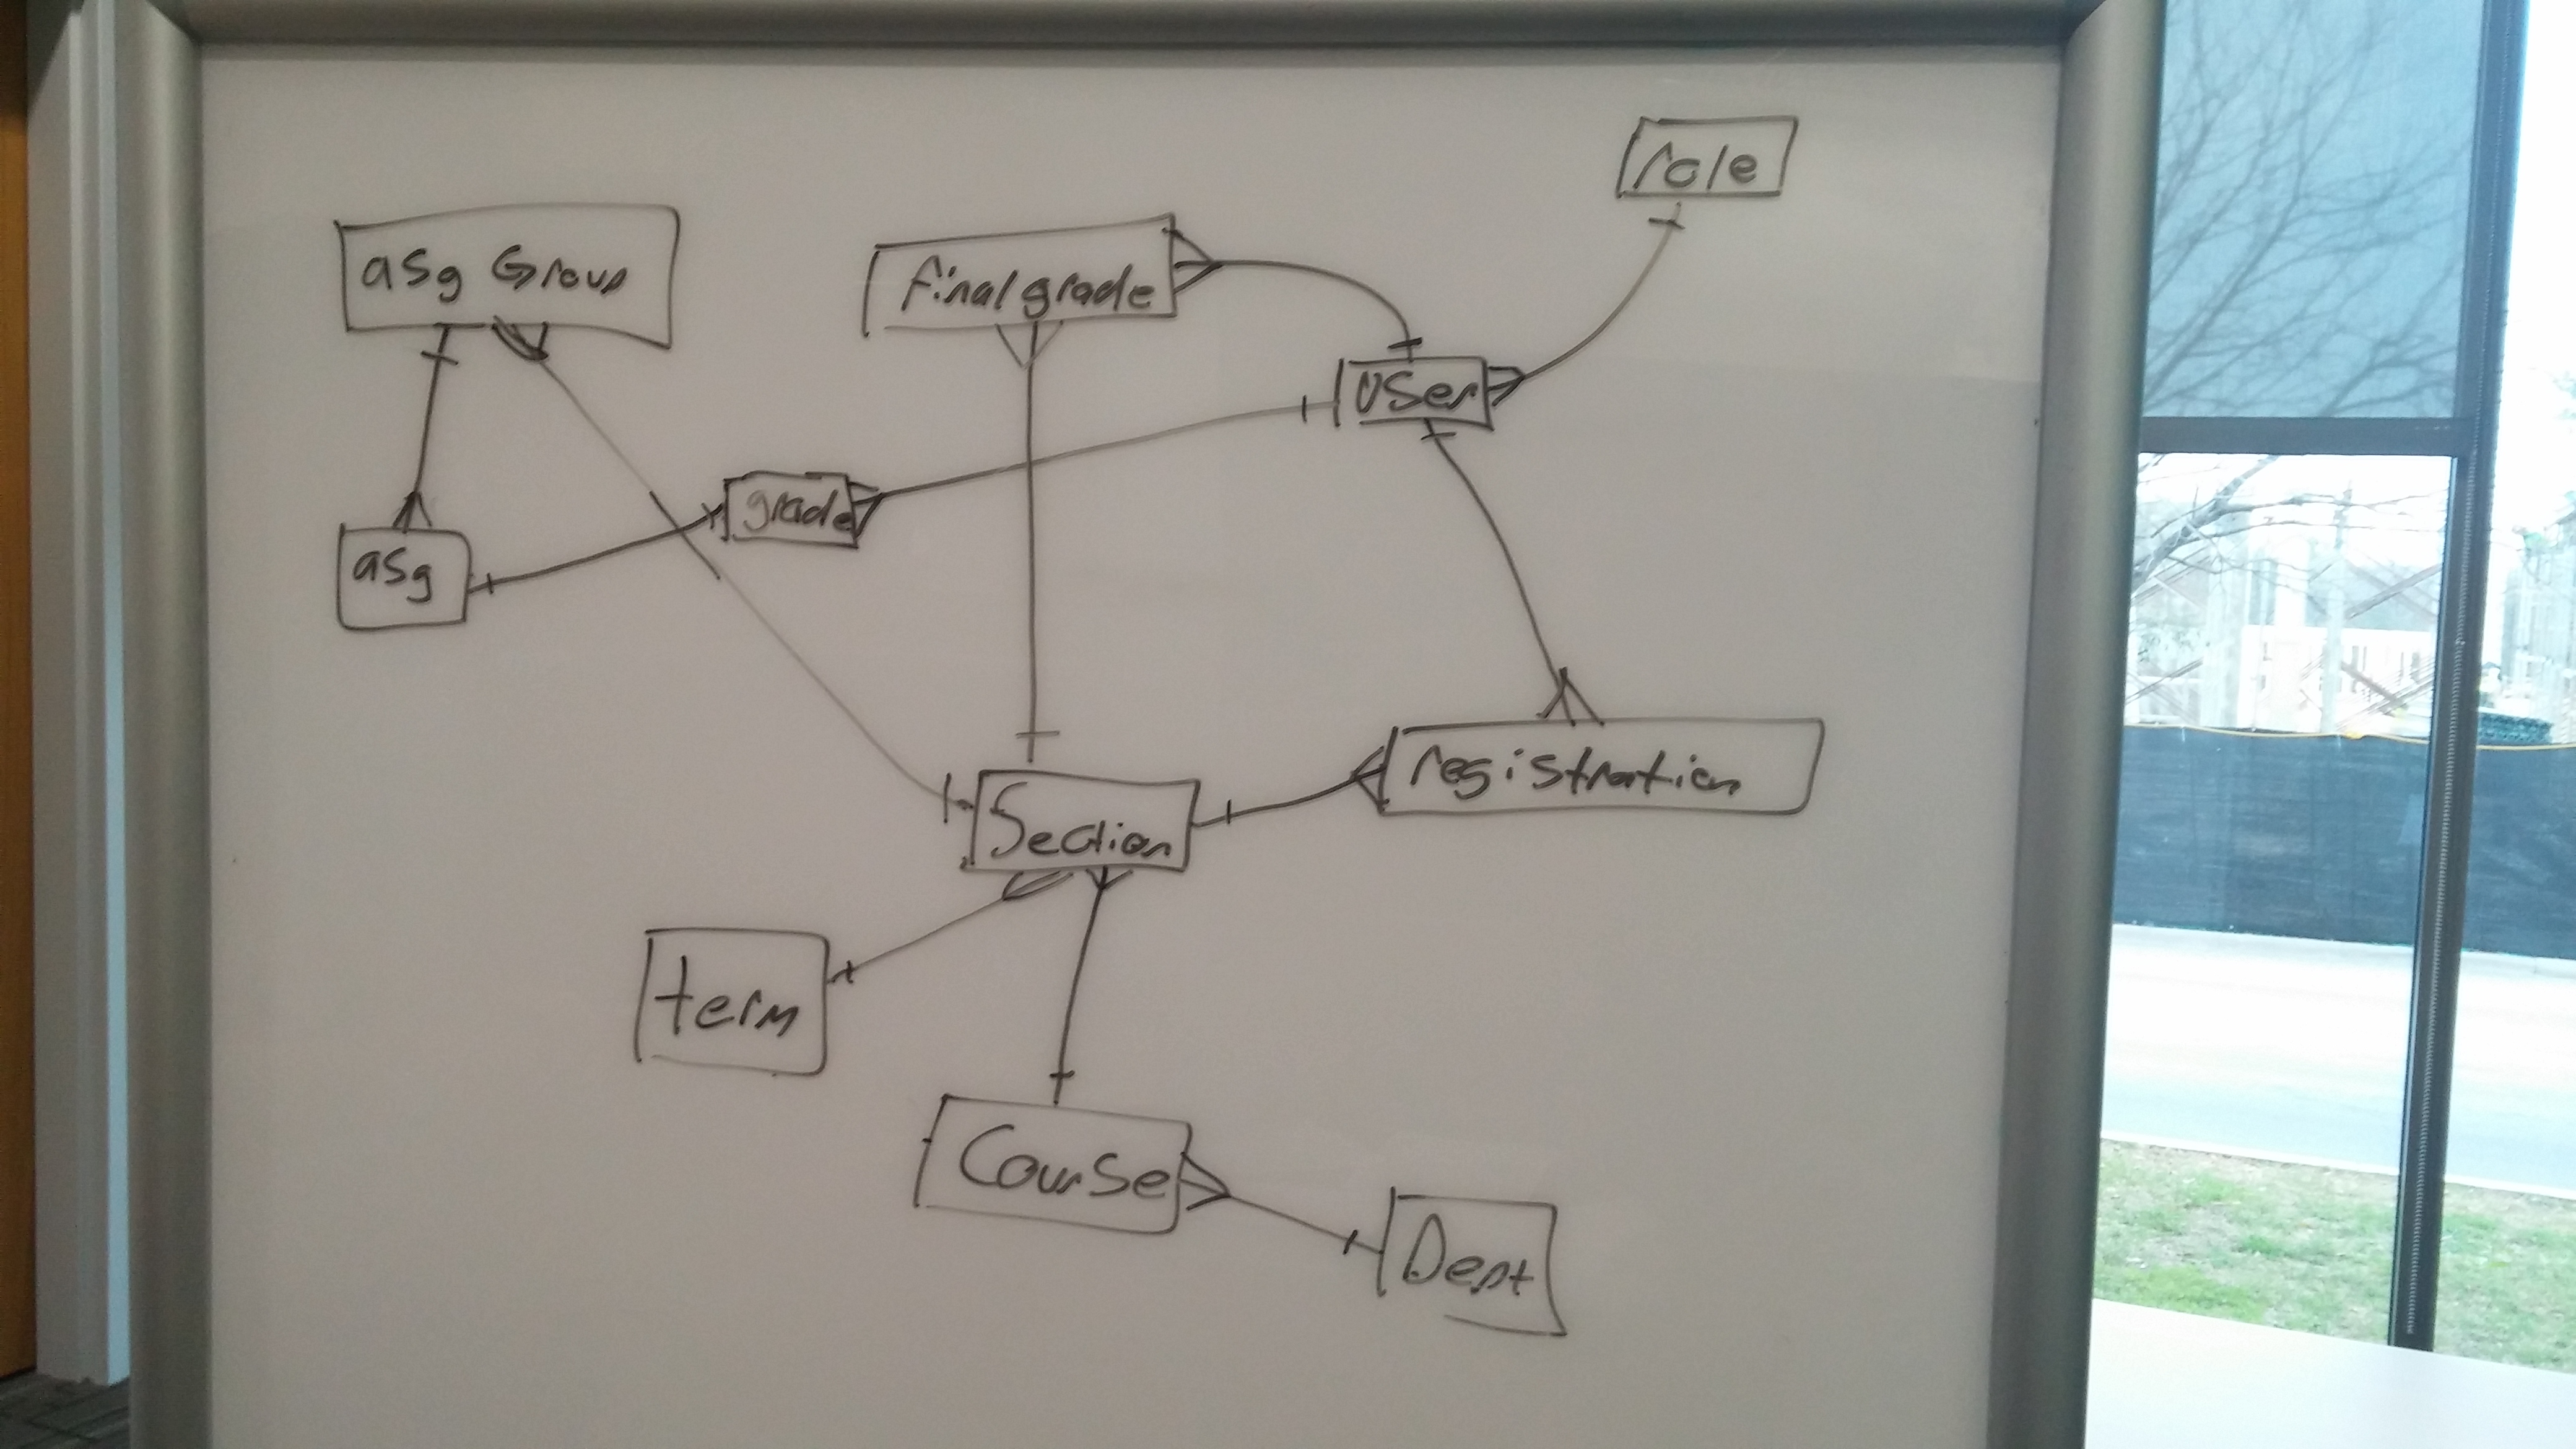 role
asg Group
finalgrade
User
grade
asg
registration
Section
term
Course
Dept